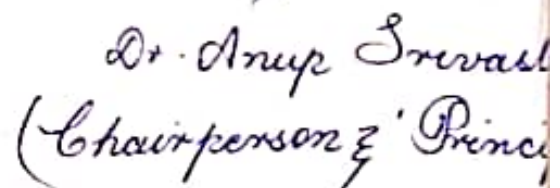 Dr. Anup Srivast
(Chairperson & Princi